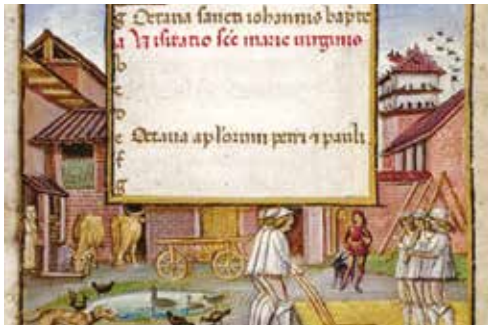 g Octaua sancti iohannis bapte
a Visitatio sce marie uirginis
b
c
d
e Octaua aplorum petri ⁊ pauli
f
g